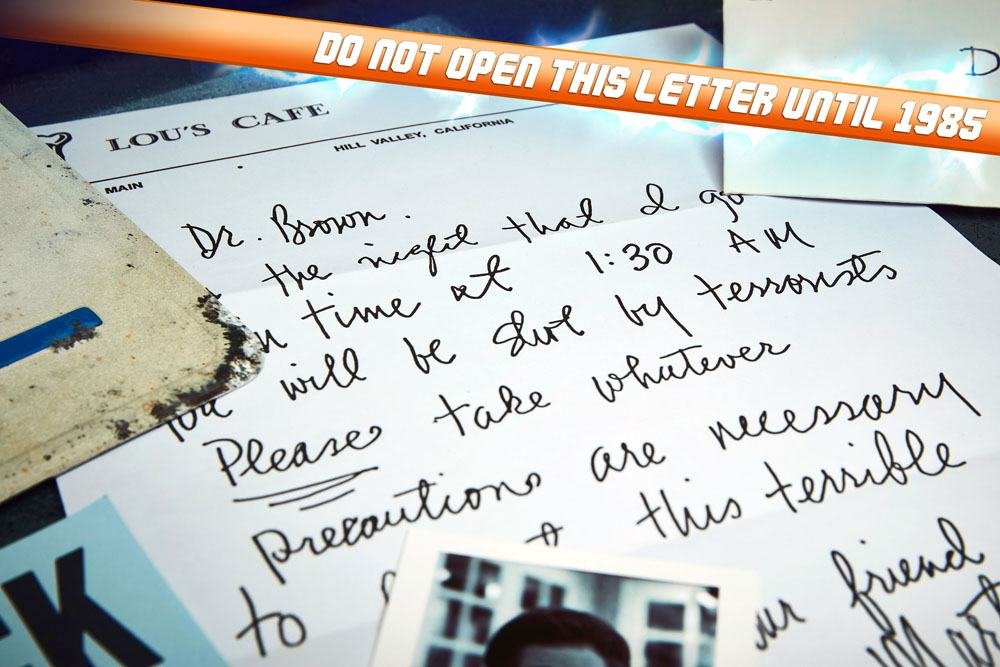 DO NOT OPEN THIS LETTER UNTIL 1985
LOU'S CAFE
HILL VALLEY, CALIFORNIA
MAIN
Dr. Brown.
the night that I go
n time at 1:30 AM
You will be shot by terrorists
Please take whatever
precautions are necessary
to this terrible
ur friend
Mart
EK
D